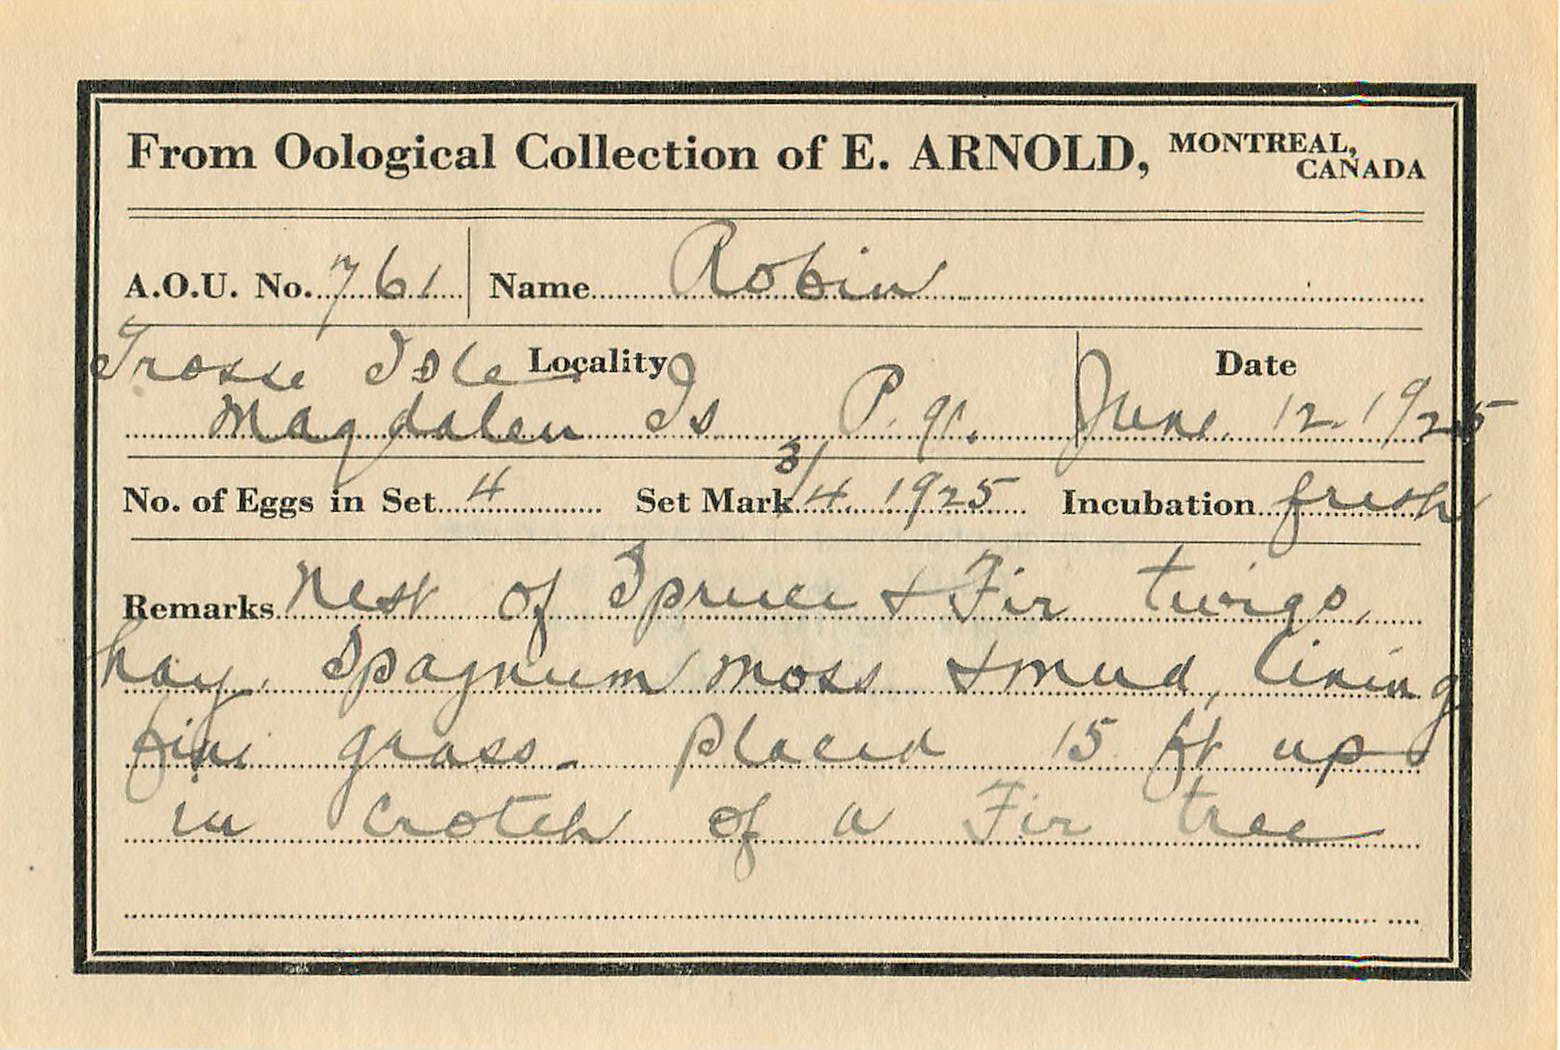 From Oological Collection of E. ARNOLD, MONTREAL, CANADA
A.O.U. No. 761 Name Robin
Grosse Isle Locality Date
Magdalen Is P. Q. June 12. 1925
No. of Eggs in Set 4 Set Mark 3/4. 1925 Incubation fresh
Remarks Nest of Spruce & Fir twigs,
hay, Spagnum moss & mud, lining
fine grass. placed 15 ft up
in crotch of a Fir tree